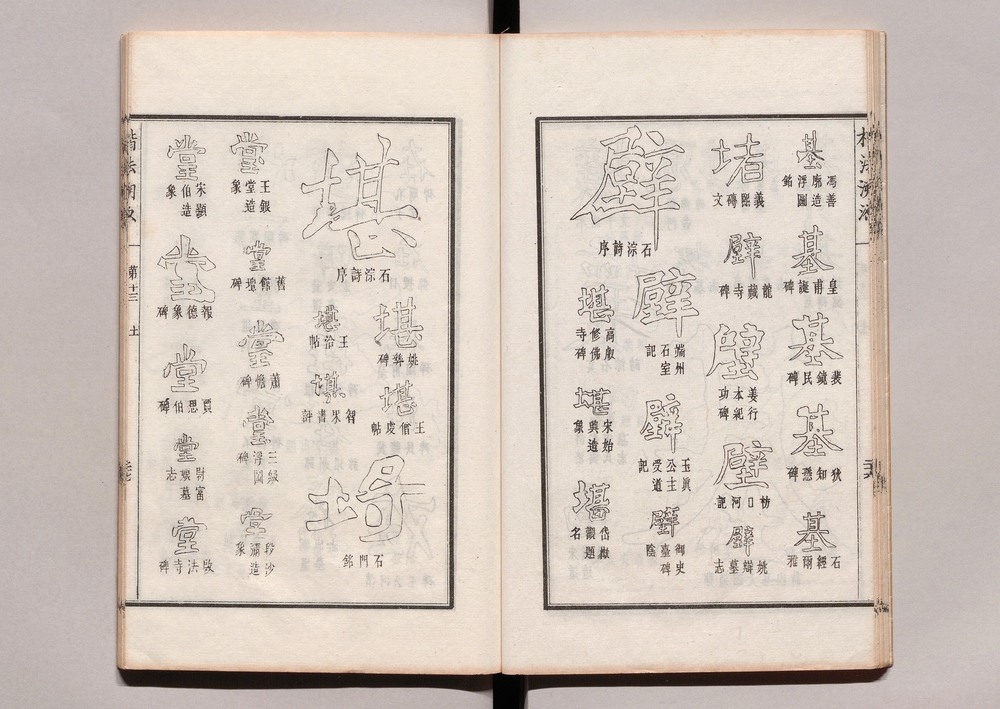 基
馮善廓造浮圖銘
基
皇甫誕碑
基
裴鏡民碑
基
狄知愻碑
基
石經爾雅
堵
義熙磚文
壁
龍藏寺碑
壁
姜行本紀功碑
壁
枋口河記
壁
姚辯墓志
壁
石淙詩序
壁
端州石室記
壁
玉真公主受道記
壁
御史臺碑陰
堪
高叡修佛寺碑
堪
宋始興造象
堪
岱嶽觀題名
堪
石淙詩序
堪
姚彝碑
堪
王僧虔帖
堪
王洽帖
堪
智果書評
埼
石門銘
堂
王銀堂造象
堂
舊館壇碑
堂
蕭憺碑
堂
三級浮圖碑
堂
段沙彌造象
堂
宋顯伯造象
堂
報德象碑
堂
賈思伯碑
堂
尉富娘墓志
堂
啟法寺碑
楷法溯源
第十三
土